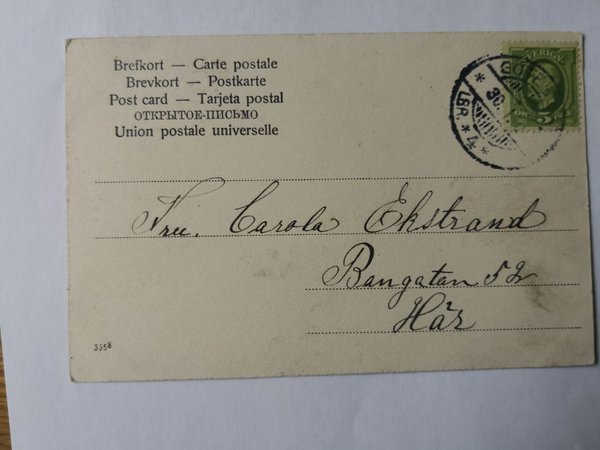 Brefkort — Carte postale
Brevkort — Postkarte
Post card — Tarjeta postal
ОТКРЫТОЕ-ПИСЬМО
Union postale universelle
SVERIGE
5
LBR.
30
Fru. Carola Ekstrand
Bangatan 52
Här
3358